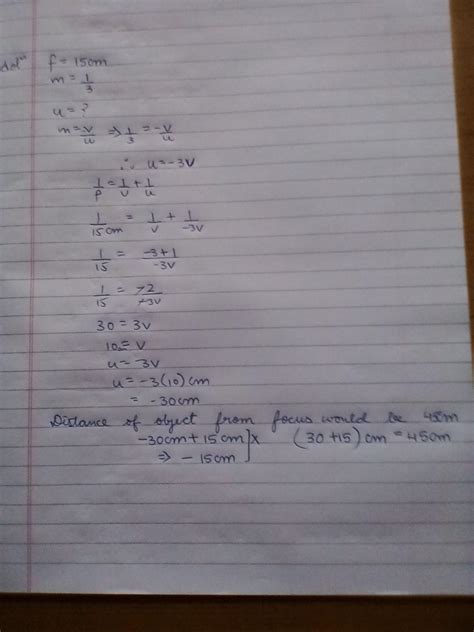 Solⁿ f = 15cm
m = 1/3
u = ?
m = v/u ⇒ 1/3 = -v/u
∴ u = -3v
1/f = 1/v + 1/u
1/15cm = 1/v + 1/-3v
1/15 = -3+1/-3v
1/15 = -2/-3v
30 = 3v
10 = v
u = -3v
u = -3(10) cm
= -30cm
Distance of object from focus would be 45m
-30cm + 15cm] x (30+15) cm = 45cm
⇒ -15cm